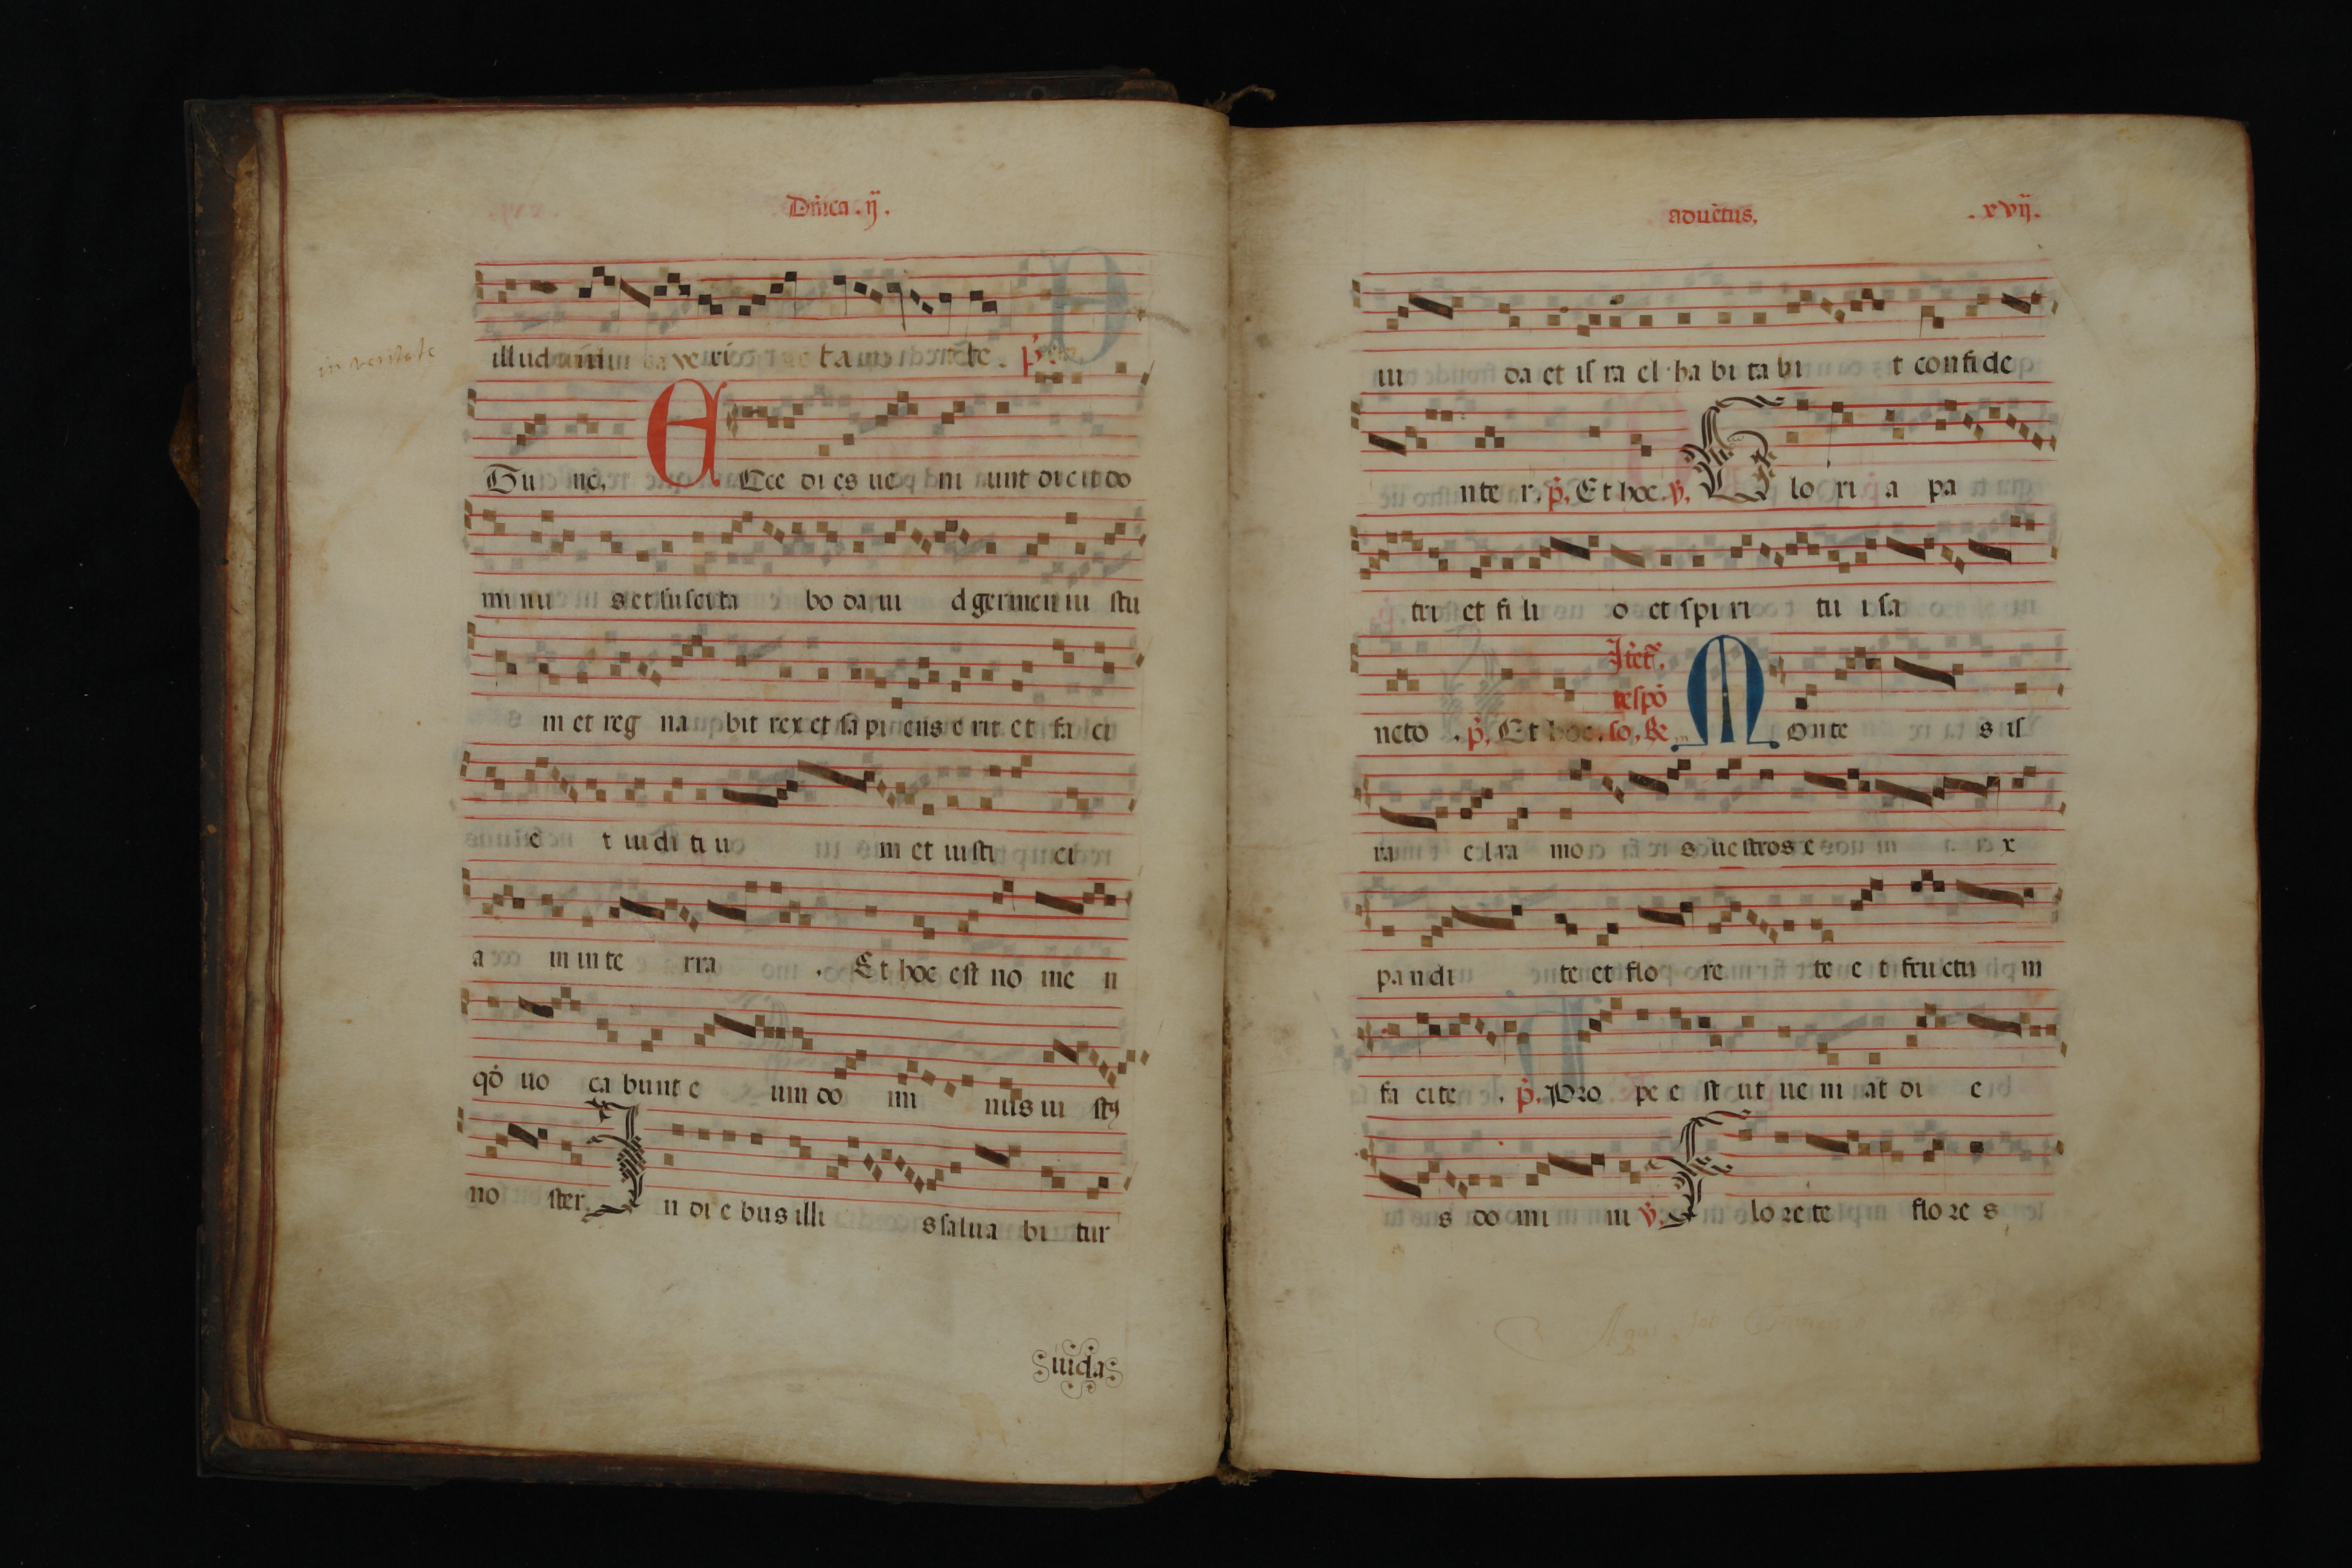 Dn̄ica . ij .
in veritate
illud in ve ri ta te . p̄.
Tu nc. ECce di es ue ni unt dicit do
mi nu s et suscita bo da ui d germen iu stu
m et reg na bit rex et sa pi ens e rit et fa ci
e t iudi ti u m et iusti ci
a m in te rra . Et hoc est no me n
qđ uo ca bunt e um do mi nus iu stꝰ
no ster. In di e bus illi s salua bi tur
iuda
aduētus. . xvij .
iu da et is ra el ha bi ta bi t confide
nte r. p̄. Et hoc. v̄. Glo ri a pa
tri et fi li o et spi ri tu i sa
Itē t̄.
respō
ncto . p̄. Et hoc. so. Re Monte s is
ra el ra mo s uestros e x
pa n di te et flo re te e t fructu m
fa cite . p̄. Pro pe e st ut ue ni at di e
s do mi ni v̄. Flo re te flo re s